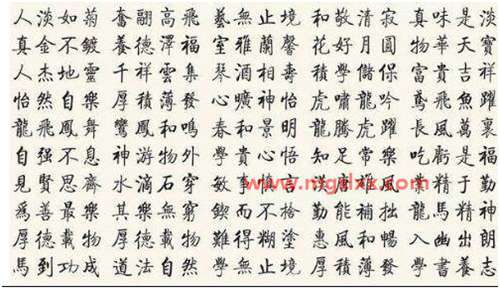 人淡如菊 奮翮高飛 藝無止境 和敬清寂 真味是淡
真金不鍍 養德澤福 室雅蘭馨 花好月圓 物華天寶
人杰地靈 千祥雲集 琴 相壽 學儲 富貴吉祥
怡然自樂 厚積薄發 曠神怡 虎嘯龍吟 鳶飛魚躍
龍飛鳳舞 鸞鳳和鳴 春和景明 龍騰虎躍 長風萬裏
自强不息 神游物外 學貴心悟 知足常樂 吃虧是福
見賢思齊 水滴石穿 敏事慎 唐雅風 精于勤
為善最樂 其樂無窮 鍥而不捨 勤能補拙 龍馬精神
厚德載物 厚德載物 難得糊塗 惠風和暢 入幽出朗
馬到功成 道法自然 學無止境 厚積薄發 學書養志